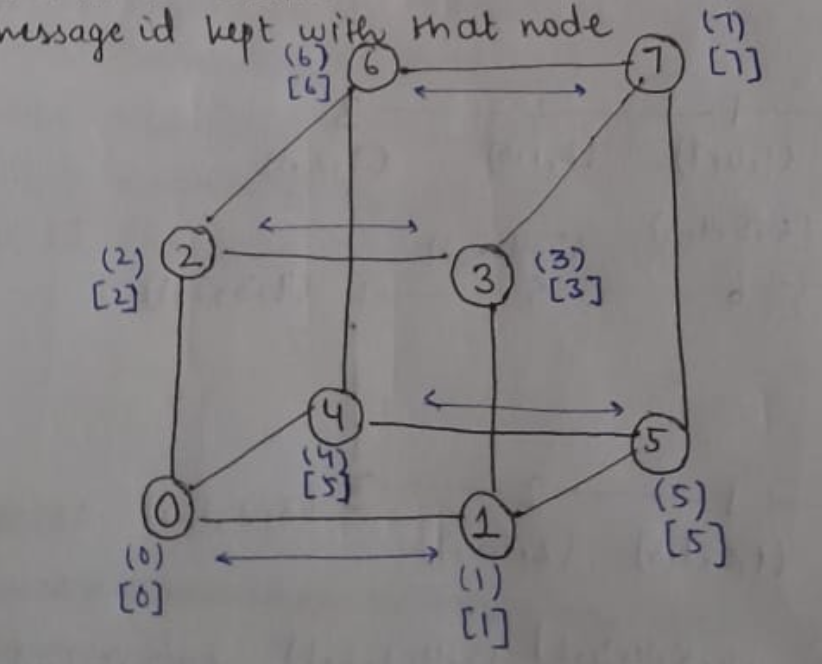 message id kept with that node
(6)
[6]
6
7
(7)
[7]
(2)
[2]
2
3
(3)
[3]
4
(4)
[5]
5
(5)
[5]
0
(0)
[0]
1
(1)
[1]